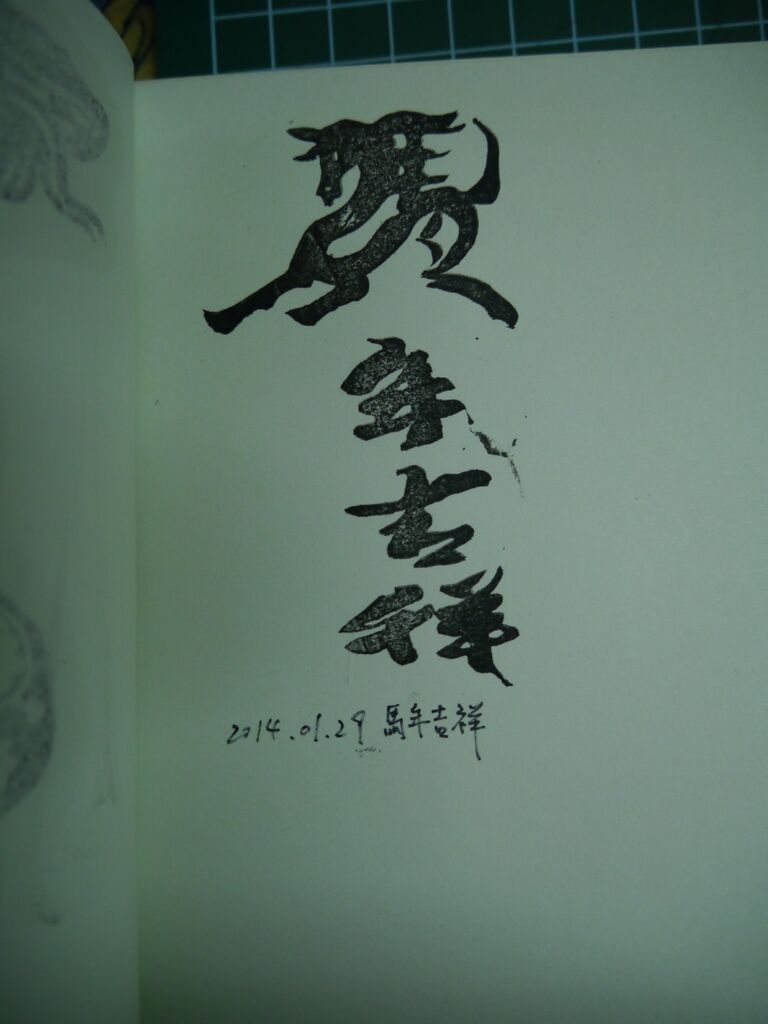 馬
年
吉
祥
2014.01.29 馬年吉祥